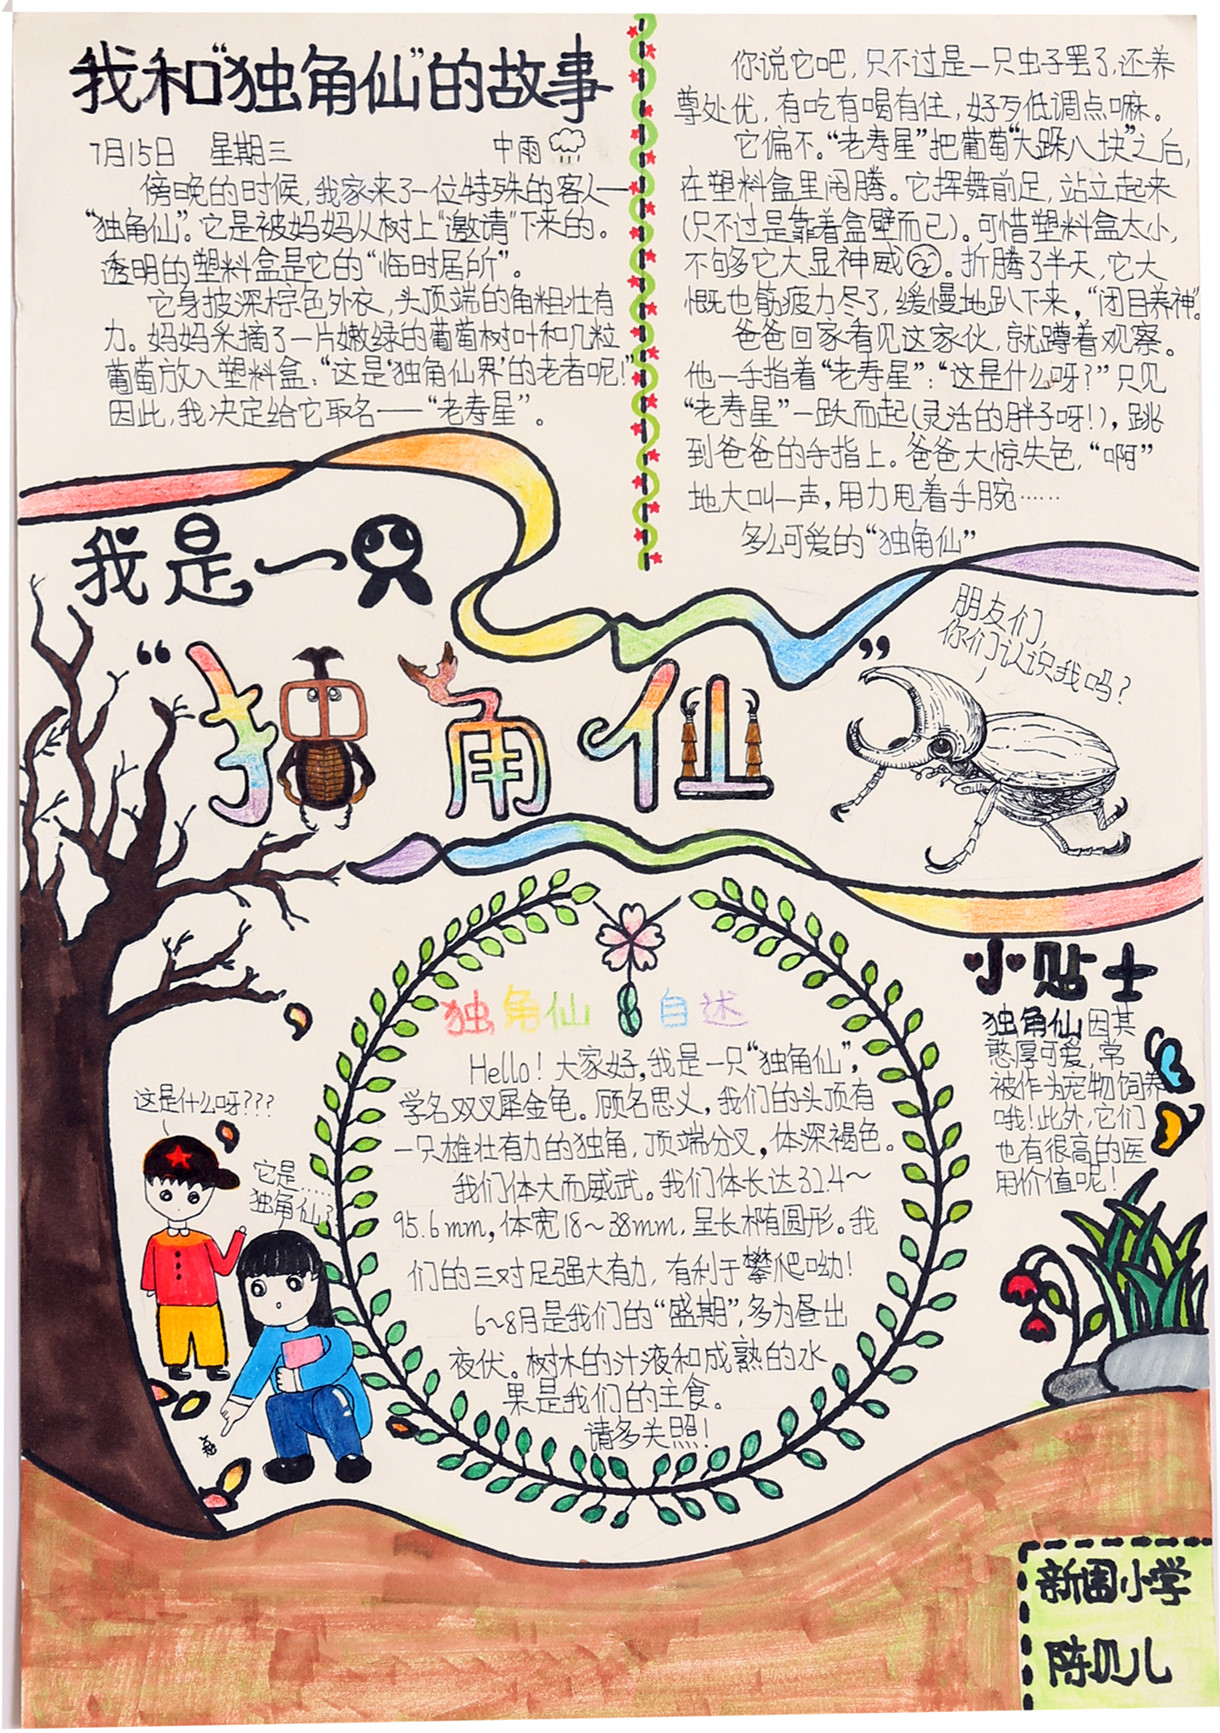 我和“独角仙”的故事
7月15日 星期三 中雨
傍晚的时候,我家来了一位特殊的客人——
“独角仙”。它是被妈妈从树上“邀请”下来的。
透明的塑料盒是它的“临时居所”。
它身披深棕色外衣,头顶端的角粗壮有
力。妈妈采摘了一片嫩绿的葡萄树叶和几粒
葡萄放入塑料盒:“这是‘独角仙界’的老者呢!”
因此,我决定给它取名——“老寿星”。
你说它吧,只不过是一只虫子罢了,还养
尊处优,有吃有喝有住,好歹低调点嘛。
它偏不。“老寿星”把葡萄“大跺八块”之后,
在塑料盒里闹腾。它挥舞前足,站立起来
(只不过是靠着盒壁而已)。可惜塑料盒太小,
不够它大显神威。折腾了半天,它大
概也筋疲力尽了,缓慢地趴下来,“闭目养神”。
爸爸回家看见这家伙,就蹲着观察。
他一手指着“老寿星”:“这是什么呀?”只见
“老寿星”一跃而起(灵活的胖子呀!),跳
到爸爸的手指上。爸爸大惊失色,“啊”
地大叫一声,用力甩着手腕……
多么可爱的“独角仙”
我是一只
“独角仙”
朋友们,
你们认识我吗?
独角仙自述
Hello!大家好,我是一只“独角仙”,
学名双叉犀金龟。顾名思义,我们的头顶有
一只雄壮有力的独角,顶端分叉,体深褐色。
我们体大而威武。我们体长达32.4~
95.6mm,体宽18~38mm,呈长椭圆形。我
们的三对足强大有力,有利于攀爬呦!
6~8月是我们的“盛期”,多为昼出
夜伏。树木的汁液和成熟的水
果是我们的主食。
请多关照!
小贴士
独角仙因其
憨厚可爱,常
被作为宠物饲养
哦!此外,它们
也有很高的医
用价值呢!
这是什么呀???
它是……
独角仙?
新围小学
陈见儿